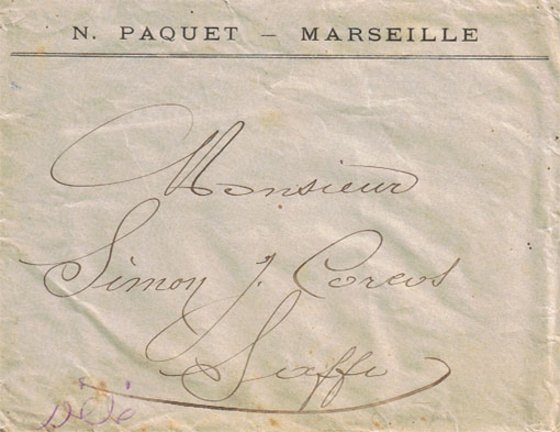 N. PAQUET – MARSEILLE
Monsieur
Simon J. Corcos
Saffi